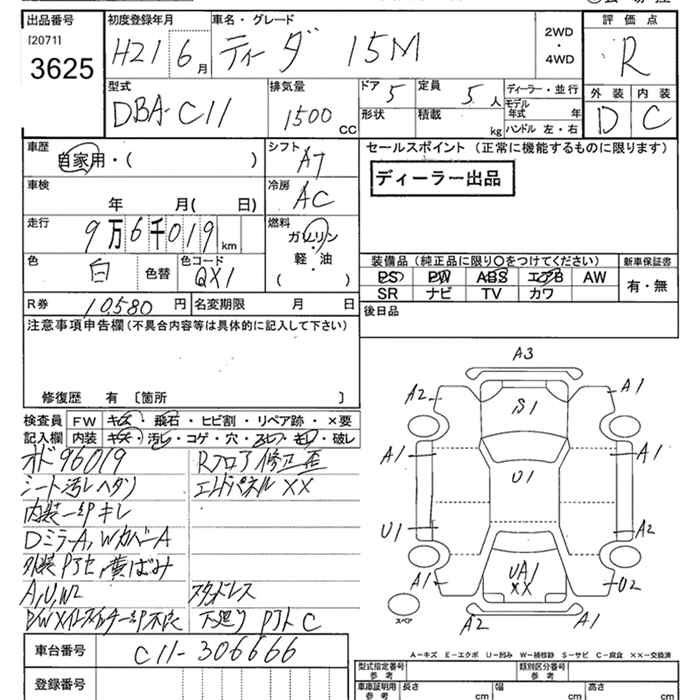 出品番号 初度登録年月 車名・グレード 2WD・4WD 評価点
[2071]
3625 H21 6月 ティーダ 15M R
型式 排気量 ドア 定員 ディーラー・並行 外装 内装
DBA-C11 1500 CC 5 5人 モデル年式 年 D C
形状 積載 kg ハンドル 左・右
車歴 シフト セールスポイント (正常に機能するものに限ります)
自家用・( ) A7 ディーラー出品
車検 冷房
年 月( 日) AC
走行 燃料
9万6千019km ガソリン・軽・油
色 色コード ( ) 装備品(純正品に限り○をつけてください) 新車保証書
白 色替 QX1 PS PW ABS エアB AW 有・無
SR ナビ TV カワ
R券 10,580円 名変期限 月 日 後日品
注意事項申告欄(不具合内容等は具体的に記入して下さい)
修復歴 有 〔箇所 〕
検査員記入欄 FW キズ・飛石・ヒビ割・リペア跡・×要
内装 キズ・汚レ・コゲ・穴・スレ・キレ・破レ
オド96019 Rフロア修正歪
シート汚レヘタリ エンドパネルXX
内装一部キレ
DミラーA,WカバーA
外装Pヌセ,黄ばみ
A,U,W2 スタッドレス
PWメインスイッチ一部不良 下廻り C
車台番号 C11-306666
登録番号
A3
A2 A1
S1
A1 A1
U1
U1 A2
A1 UA1 U2
XX
スペア A2 A1
A－キズ E－エクボ U－凹み W－補修跡 S－サビ C－腐食 XX－交換済
型式指定番号 類別区分番号
参考 参考
車庫証明用 長さ 幅 高さ
参考 cm cm cm